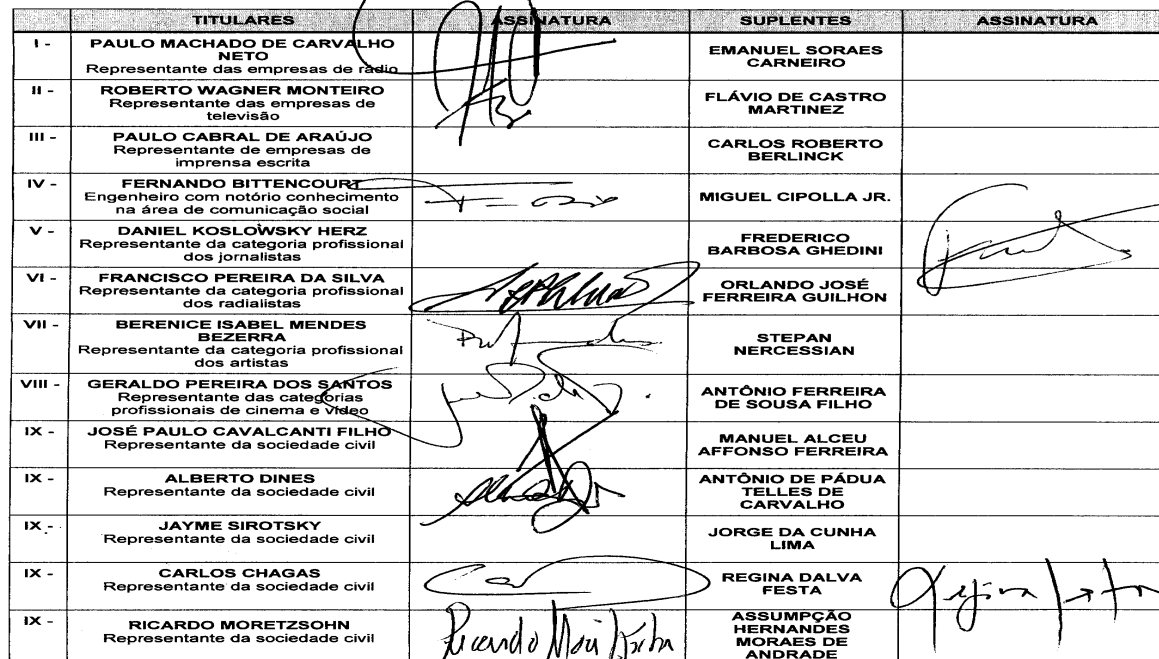 TITULARES ASSINATURA SUPLENTES ASSINATURA
I - PAULO MACHADO DE CARVALHO
NETO
Representante das empresas de rádio
EMANUEL SORAES
CARNEIRO
II - ROBERTO WAGNER MONTEIRO
Representante das empresas de
televisão
FLÁVIO DE CASTRO
MARTINEZ
III - PAULO CABRAL DE ARAÚJO
Representante de empresas de
imprensa escrita
CARLOS ROBERTO
BERLINCK
IV - FERNANDO BITTENCOURT
Engenheiro com notório conhecimento
na área de comunicação social
MIGUEL CIPOLLA JR.
V - DANIEL KOSLOWSKY HERZ
Representante da categoria profissional
dos jornalistas
FREDERICO
BARBOSA GHEDINI
VI - FRANCISCO PEREIRA DA SILVA
Representante da categoria profissional
dos radialistas
ORLANDO JOSÉ
FERREIRA GUILHON
VII - BERENICE ISABEL MENDES
BEZERRA
Representante da categoria profissional
dos artistas
STEPAN
NERCESSIAN
VIII - GERALDO PEREIRA DOS SANTOS
Representante das categorias
profissionais de cinema e vídeo
ANTÔNIO FERREIRA
DE SOUSA FILHO
IX - JOSÉ PAULO CAVALCANTI FILHO
Representante da sociedade civil
MANUEL ALCEU
AFFONSO FERREIRA
IX - ALBERTO DINES
Representante da sociedade civil
ANTÔNIO DE PÁDUA
TELLES DE
CARVALHO
IX - JAYME SIROTSKY
Representante da sociedade civil
JORGE DA CUNHA
LIMA
IX - CARLOS CHAGAS
Representante da sociedade civil
REGINA DALVA
FESTA
Regina
IX - RICARDO MORETZSOHN
Representante da sociedade civil
Ricardo
ASSUMPÇÃO
HERNANDES
MORAES DE
ANDRADE